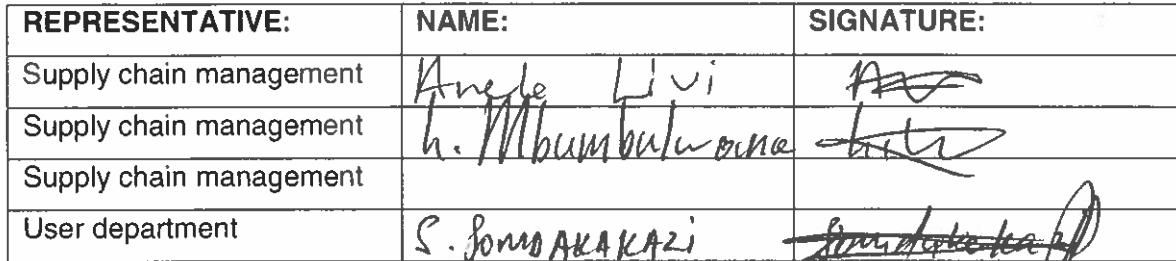 REPRESENTATIVE: NAME: SIGNATURE:
Supply chain management Anele Livi
Supply chain management h. Mbumbulwana
Supply chain management
User department S. SOMDAKAKAZI Somdakakazi